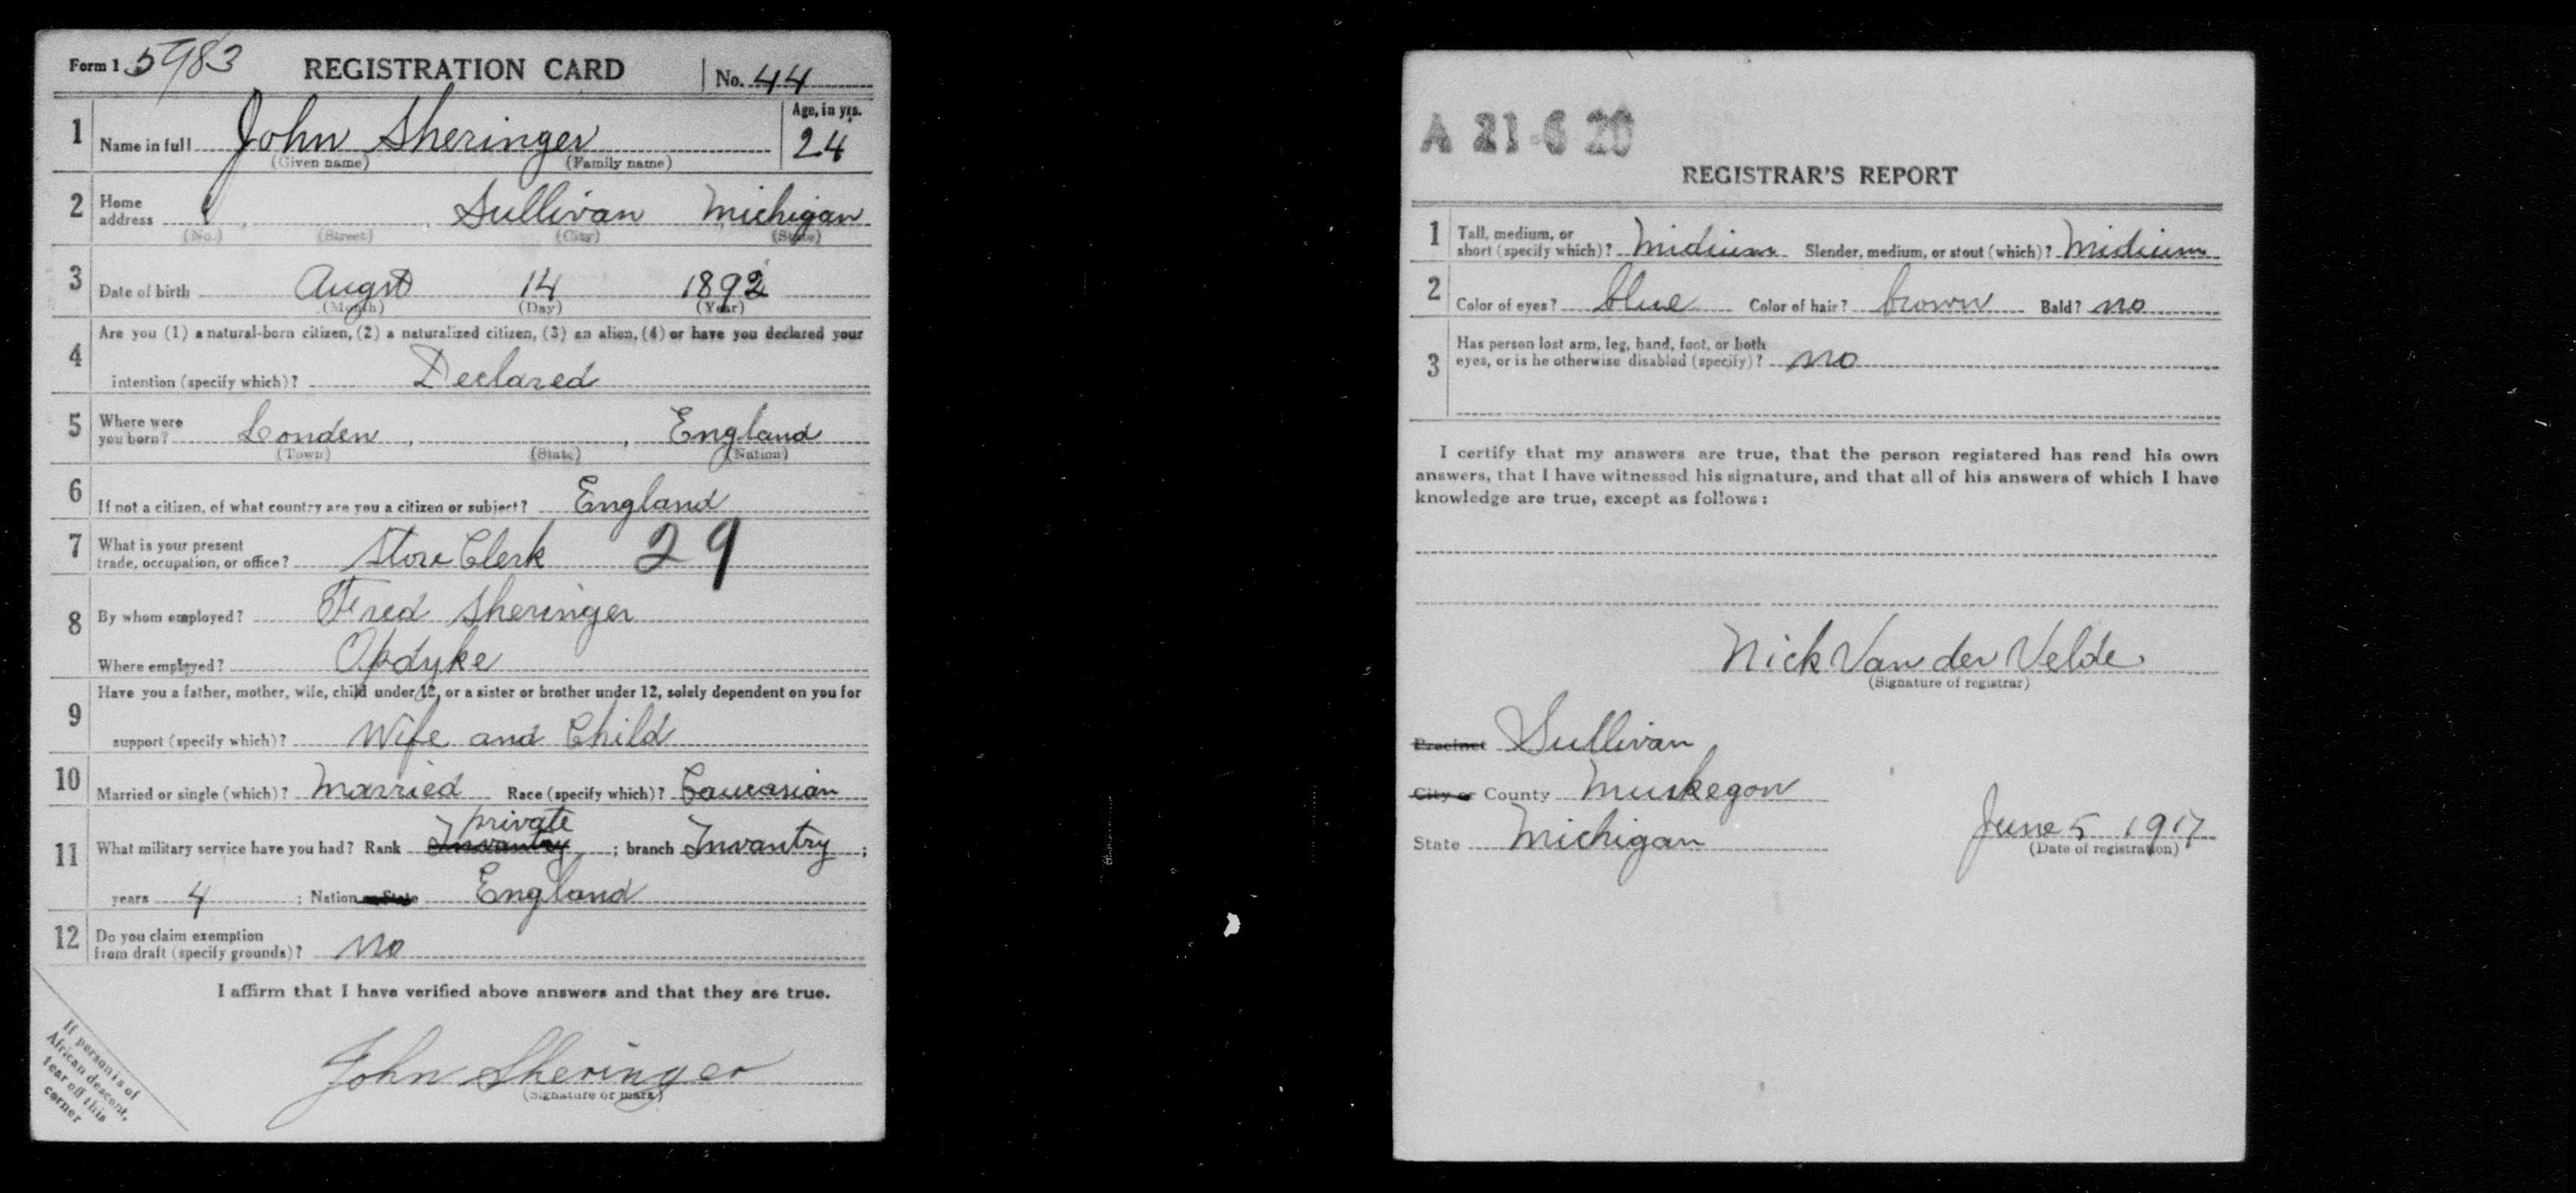 Form 1 5983 REGISTRATION CARD No. 44
1 Name in full John Sheringer Age, in yrs. 24
(Given name) (Family name)
2 Home address Sullivan Michigan
(No.) (Street) (City) (State)
3 Date of birth Augst 14 1892
(Month) (Day) (Year)
4 Are you (1) a natural-born citizen, (2) a naturalized citizen, (3) an alien, (4) or have you declared your
intention (specify which)? Declared
5 Where were you born? Londen, , England
(Town) (State) (Nation)
6 If not a citizen, of what country are you a citizen or subject? England
7 What is your present trade, occupation, or office? Store Clerk 29
8 By whom employed? Fred Sheringer
Where employed? Opdyke
9 Have you a father, mother, wife, child under 12, or a sister or brother under 12, solely dependent on you for
support (specify which)? Wife and Child
10 Married or single (which)? Married Race (specify which)? Caucasian
private
11 What military service have you had? Rank Invantry ; branch Invantry ;
years 4 ; Nation or State England
12 Do you claim exemption from draft (specify grounds)? No
I affirm that I have verified above answers and that they are true.
John Sheringer
(Signature or mark)
If person is of
African descent,
tear off this
corner
A 21 6 20
REGISTRAR'S REPORT
1 Tall, medium, or short (specify which)? Midium Slender, medium, or stout (which)? Midium
2 Color of eyes? blue Color of hair? brown Bald? no
3 Has person lost arm, leg, hand, foot, or both
eyes, or is he otherwise disabled (specify)? no
I certify that my answers are true, that the person registered has read his own
answers, that I have witnessed his signature, and that all of his answers of which I have
knowledge are true, except as follows:
Nick Van der Velde
(Signature of registrar)
Precinct Sullivan
City or County Muskegon
State Michigan June 5 1917
(Date of registration)